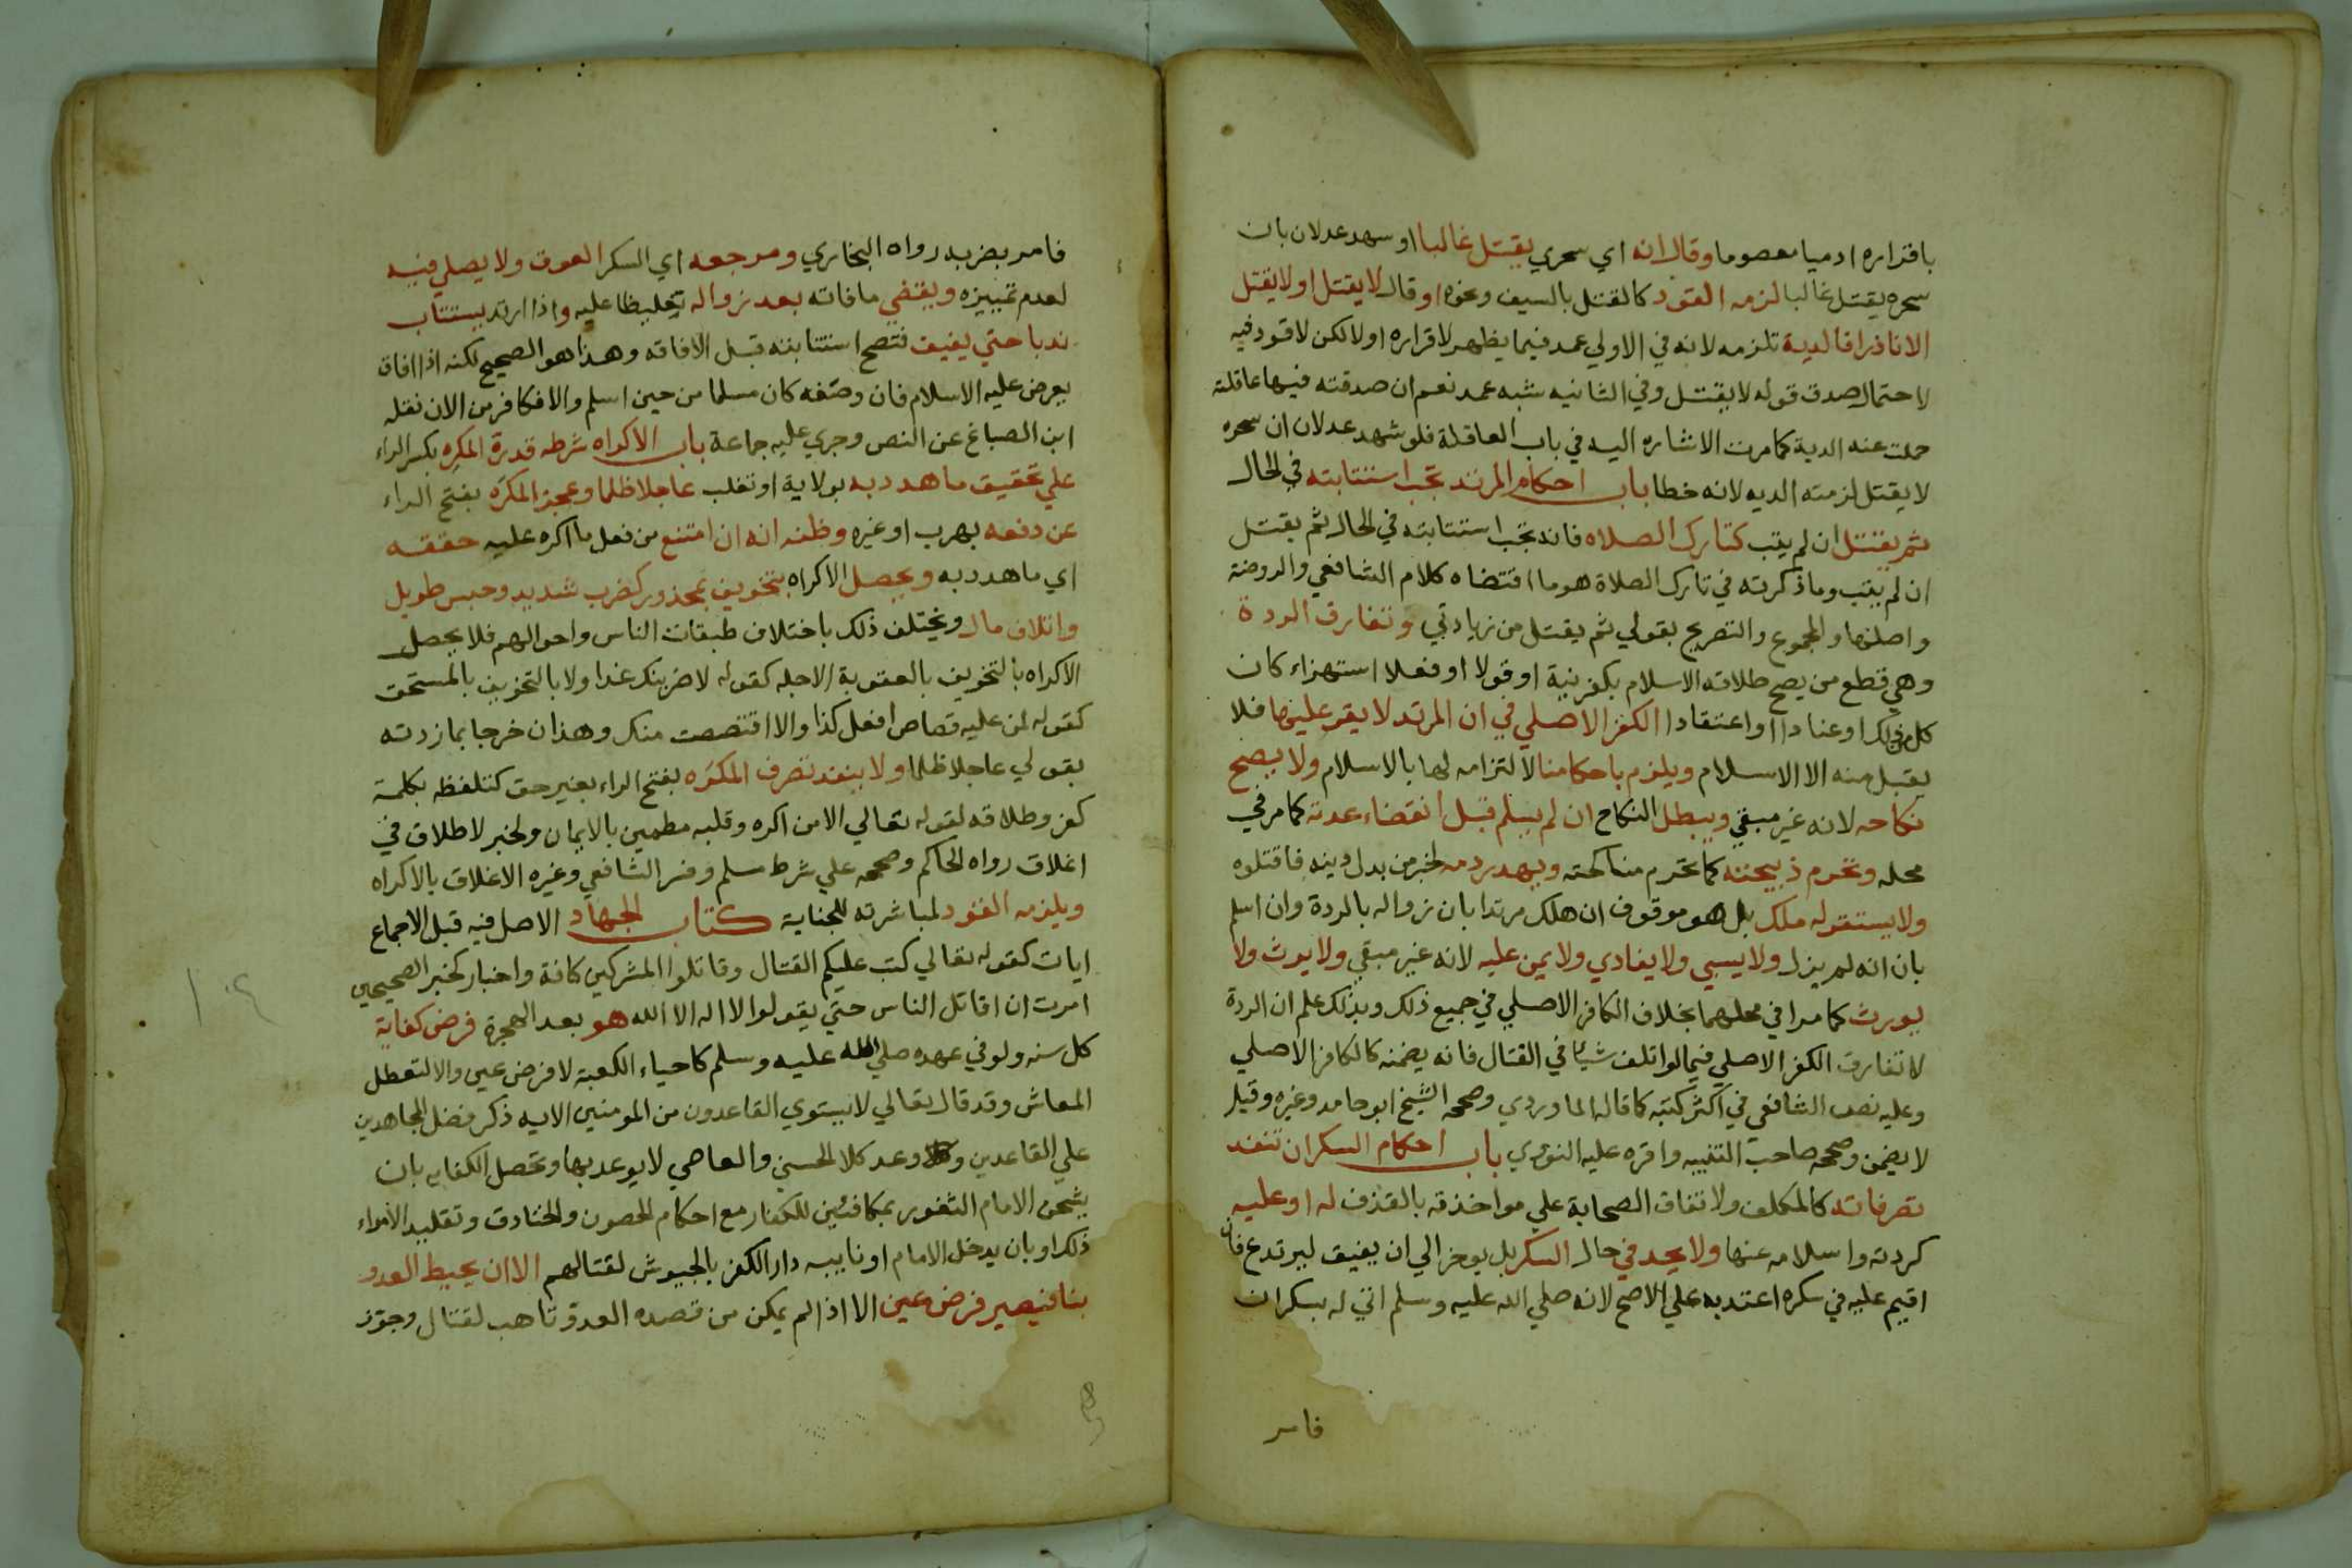 باقراره ادميا معصوما وقال انه اي سحري يقتل غالبا او شهد عدلان بان
سحره يقتل غالبا لزمه القود كالقتل بالسيف ونحوه او قال لا يقتل او لا يقتل
الا نادرا فالدية تلزمه لانه في الاولي عمد فيما يظهر لاقراره اولا لكن لا قود فيه
لاحتمال صدق قوله لا يقتل وفي الثانيه شبه عمد نعم ان صدقته فيها عاقلته
حملت عنه الدية كما مرت الاشاره اليه في باب العاقلة فلو شهد عدلان ان سحره
لا يقتل لزمته الديه لانه خطا باب احكام المرتد تجب استتابته في الحال
ثم يقتل ان لم يتب كتارك الصلاه فانه تجب استتابته في الحال ثم يقتل
ان لم يتب وما ذكرته في تارك الصلاة هو ما اقتضاه كلام الشافعي والروضة
واصلها والمجموع والتصريح بقولي ثم يقتل من زيادتي وتفارق الردة
وهي قطع من يصح طلاقه الاسلام بكفر بنية او قولا او فعلا استهزاء كان
كل من ذلك او عنادا او اعتقادا الكفر الاصلي في ان المرتد لا يقر عليها فلا
يقبل منه الا الاسلام ويلزم باحكامنا لالتزامه لها بالاسلام ولا يصح
نكاحه لانه غير مبقي ويبطل النكاح ان لم يسلم قبل انقضاء عدته كما مر في
محله وتحرم ذبيحته كما تحرم مناكحته ويهدر دمه لخبر من بدل دينه فاقتلوه
ولا يستقر له ملك بل هو موقوف ان هلك مرتدا بان زواله بالردة وان اسلم
بان انه لم يزل ولا يسبي ولا يفادي ولا يمن عليه لانه غير مبقي ولا يرث ولا
يورث كما مرا في محلهما بخلاف الكافر الاصلي في جميع ذلك وبذلك علم ان الردة
لا تفارق الكفر الاصلي فيما لو اتلف شيئا في القتال فانه يضمنه كالكافر الاصلي
وعليه نص الشافعي في اكثر كتبه كما قاله الماوردي وصححه الشيخ ابو حامد وغيره وقيل
لا يضمن وصححه صاحب التنبيه واقره عليه النووي باب احكام السكران تنفذ
تصرفاته كالمكلف ولاتفاق الصحابة علي مواخذته بالقذف له او عليه
كردته واسلامه عنها ولا يحد في حال السكر بل يوخر الي ان يفيق ليرتدع فان
اقيم عليه في سكره اعتد به علي الاصح لانه صلي الله عليه وسلم اتي له بسكران
فامر
فامر بضربه رواه البخاري ومرجعه اي السكر العرف ولا يصلي فيه
لعدم تمييزه ويقضي ما فاته بعد زواله تغليظا عليه واذا ارتد يستتاب
ندبا حتي يفيق فتصح استتابته قبل الافاقه وهذا هو الصحيح لكنه اذا افاق
يعرض عليه الاسلام فان وصفه كان مسلما من حين اسلم والا فكافر من الان نقله
ابن الصباغ عن النص وجري عليه جماعة باب الاكراه شرطه قدرة المكرِه بكسر الراء
علي تحقيق ما هدد به بولاية او تغلب عاجلا ظلما وعجز المكرَه بفتح الراء
عن دفعه بهرب او غيره وظنه انه ان امتنع من فعل ما اكره عليه حققه
اي ما هدد به ويحصل الاكراه بتخويف بمحذور كضرب شديد وحبس طويل
واتلاف مال ويختلف ذلك باختلاف طبقات الناس واحوالهم فلا يحصل
الاكراه بالتخويف بالعقوبة الاجله كقوله لاضربنك غدا ولا بالتخويف بالمستحق
كقوله لمن عليه قصاص افعل كذا والا اقتصصت منك وهذان خرجا بما زدته
بقولي عاجلا ظلما ولا ينفذ تصرف المكرَه بفتح الراء بغير حق كتلفظه بكلمة
كفر وطلاقه لقوله تعالي الا من اكره وقلبه مطمين بالايمان ولخبر لا طلاق في
اغلاق رواه الحاكم وصححه علي شرط مسلم وفسر الشافعي وغيره الاغلاق بالاكراه
ويلزمه القود لمباشرته للجناية كتاب الجهاد الاصل فيه قبل الاجماع
ايات كقوله تعالي كتب عليكم القتال وقاتلوا المشركين كافة واخبار كخبر الصحيحين
امرت ان اقاتل الناس حتي يقولوا لا اله الا الله هو بعد الهجرة فرض كفاية
كل سنه ولو في عهده صلي الله عليه وسلم كاحياء الكعبة لا فرض عين والا لتعطل
المعاش وقد قال تعالي لا يستوي القاعدون من المومنين الايه ذكر فضل المجاهدين
علي القاعدين وعد كلا الحسني والعاصي لا يوعد بها وتحصل الكفايه بان
يشحن الامام الثغور بمكافئين للكفار مع احكام الحصون والخنادق وتقليد الامراء
ذلك او بان يدخل الامام او نايبه دار الكفر بالجيوش لقتالهم الا ان يحيط العدو
بنا فيصير فرض عين الا اذا لم يمكن من قصده العدو تاهب لقتال وجوز
١٠٤